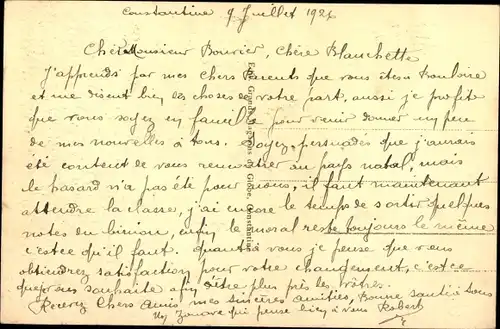 Constantine 9 Juillet 192
Cher Monsieur Bouvier, Chère Blanchette
J'apprends par mes chers Parents que vous êtes à Bouloire
et me disent bien les choses de votre part, aussi je profite
que vous soyez en famille pour venir donner un peu
de mes nouvelles à tous. Soyez persuadés que j'aurais
été content de vous rencontrer au pays natal, mais
le hasard n'a pas été pour nous, il faut maintenant
attendre la classe, j'ai encore le temps de sortir quelques
notes du enfin le moral reste toujours le même
c'est ce qu'il faut. Quant à vous je pense que vous
obtiendrez satisfaction pour votre changement, c'est ce
que vous souhaite afin d'être plus près les vôtres.
Recevez Chers Amis mes sincères amitiés, Bonne santé à tous
Un Zouave qui pense bien à vous Robert
Globe, Constantine